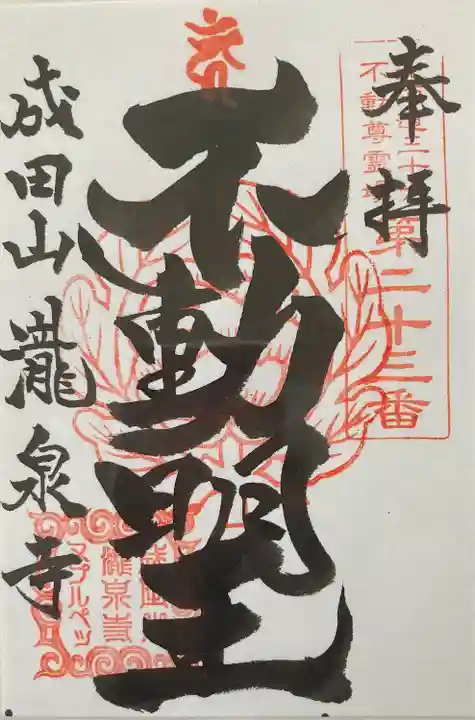 奉拝
不動尊霊場
第二十三番
不動明王
成田山瀧泉寺
瀧泉寺
スプルペツ